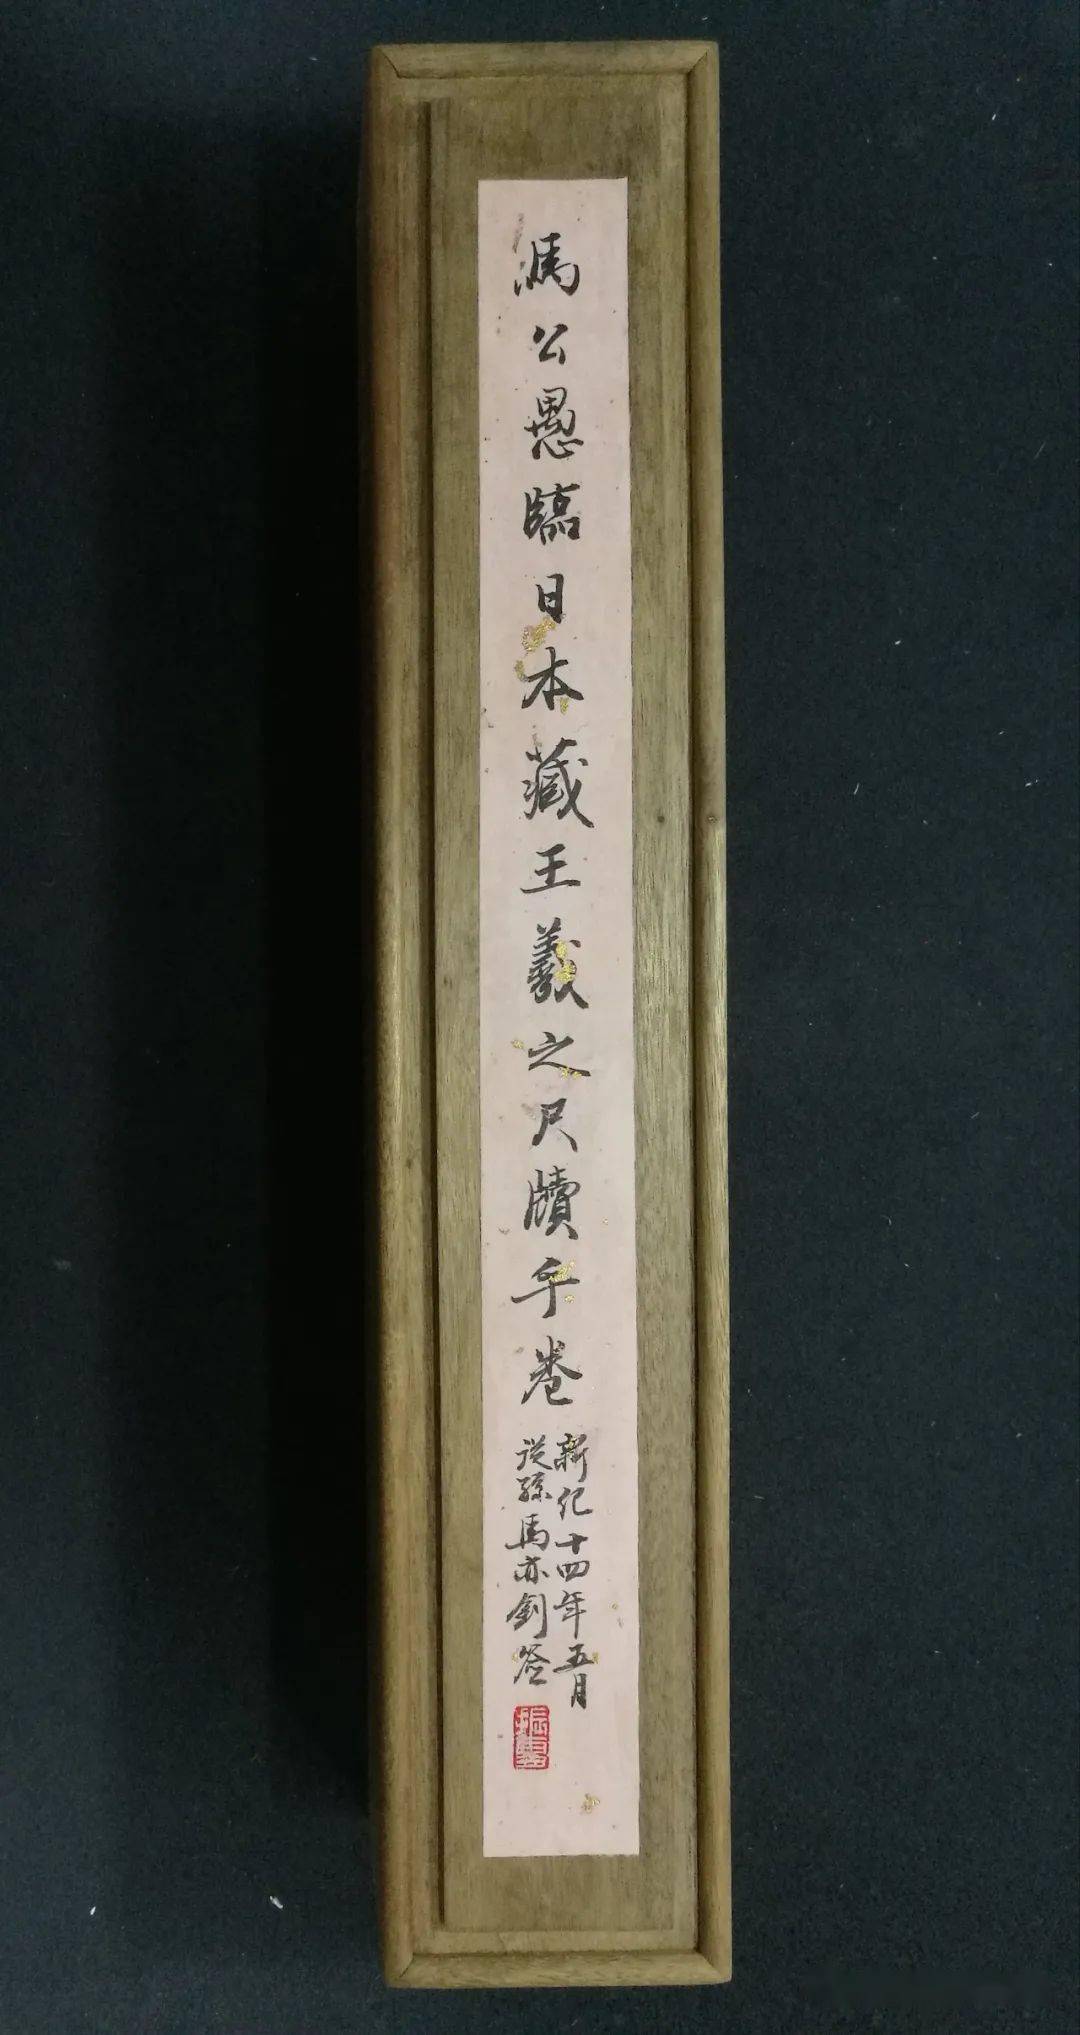 馮公愚臨日本藏王羲之尺牘手卷
新紀十四年五月
從孫馬亦釗簽